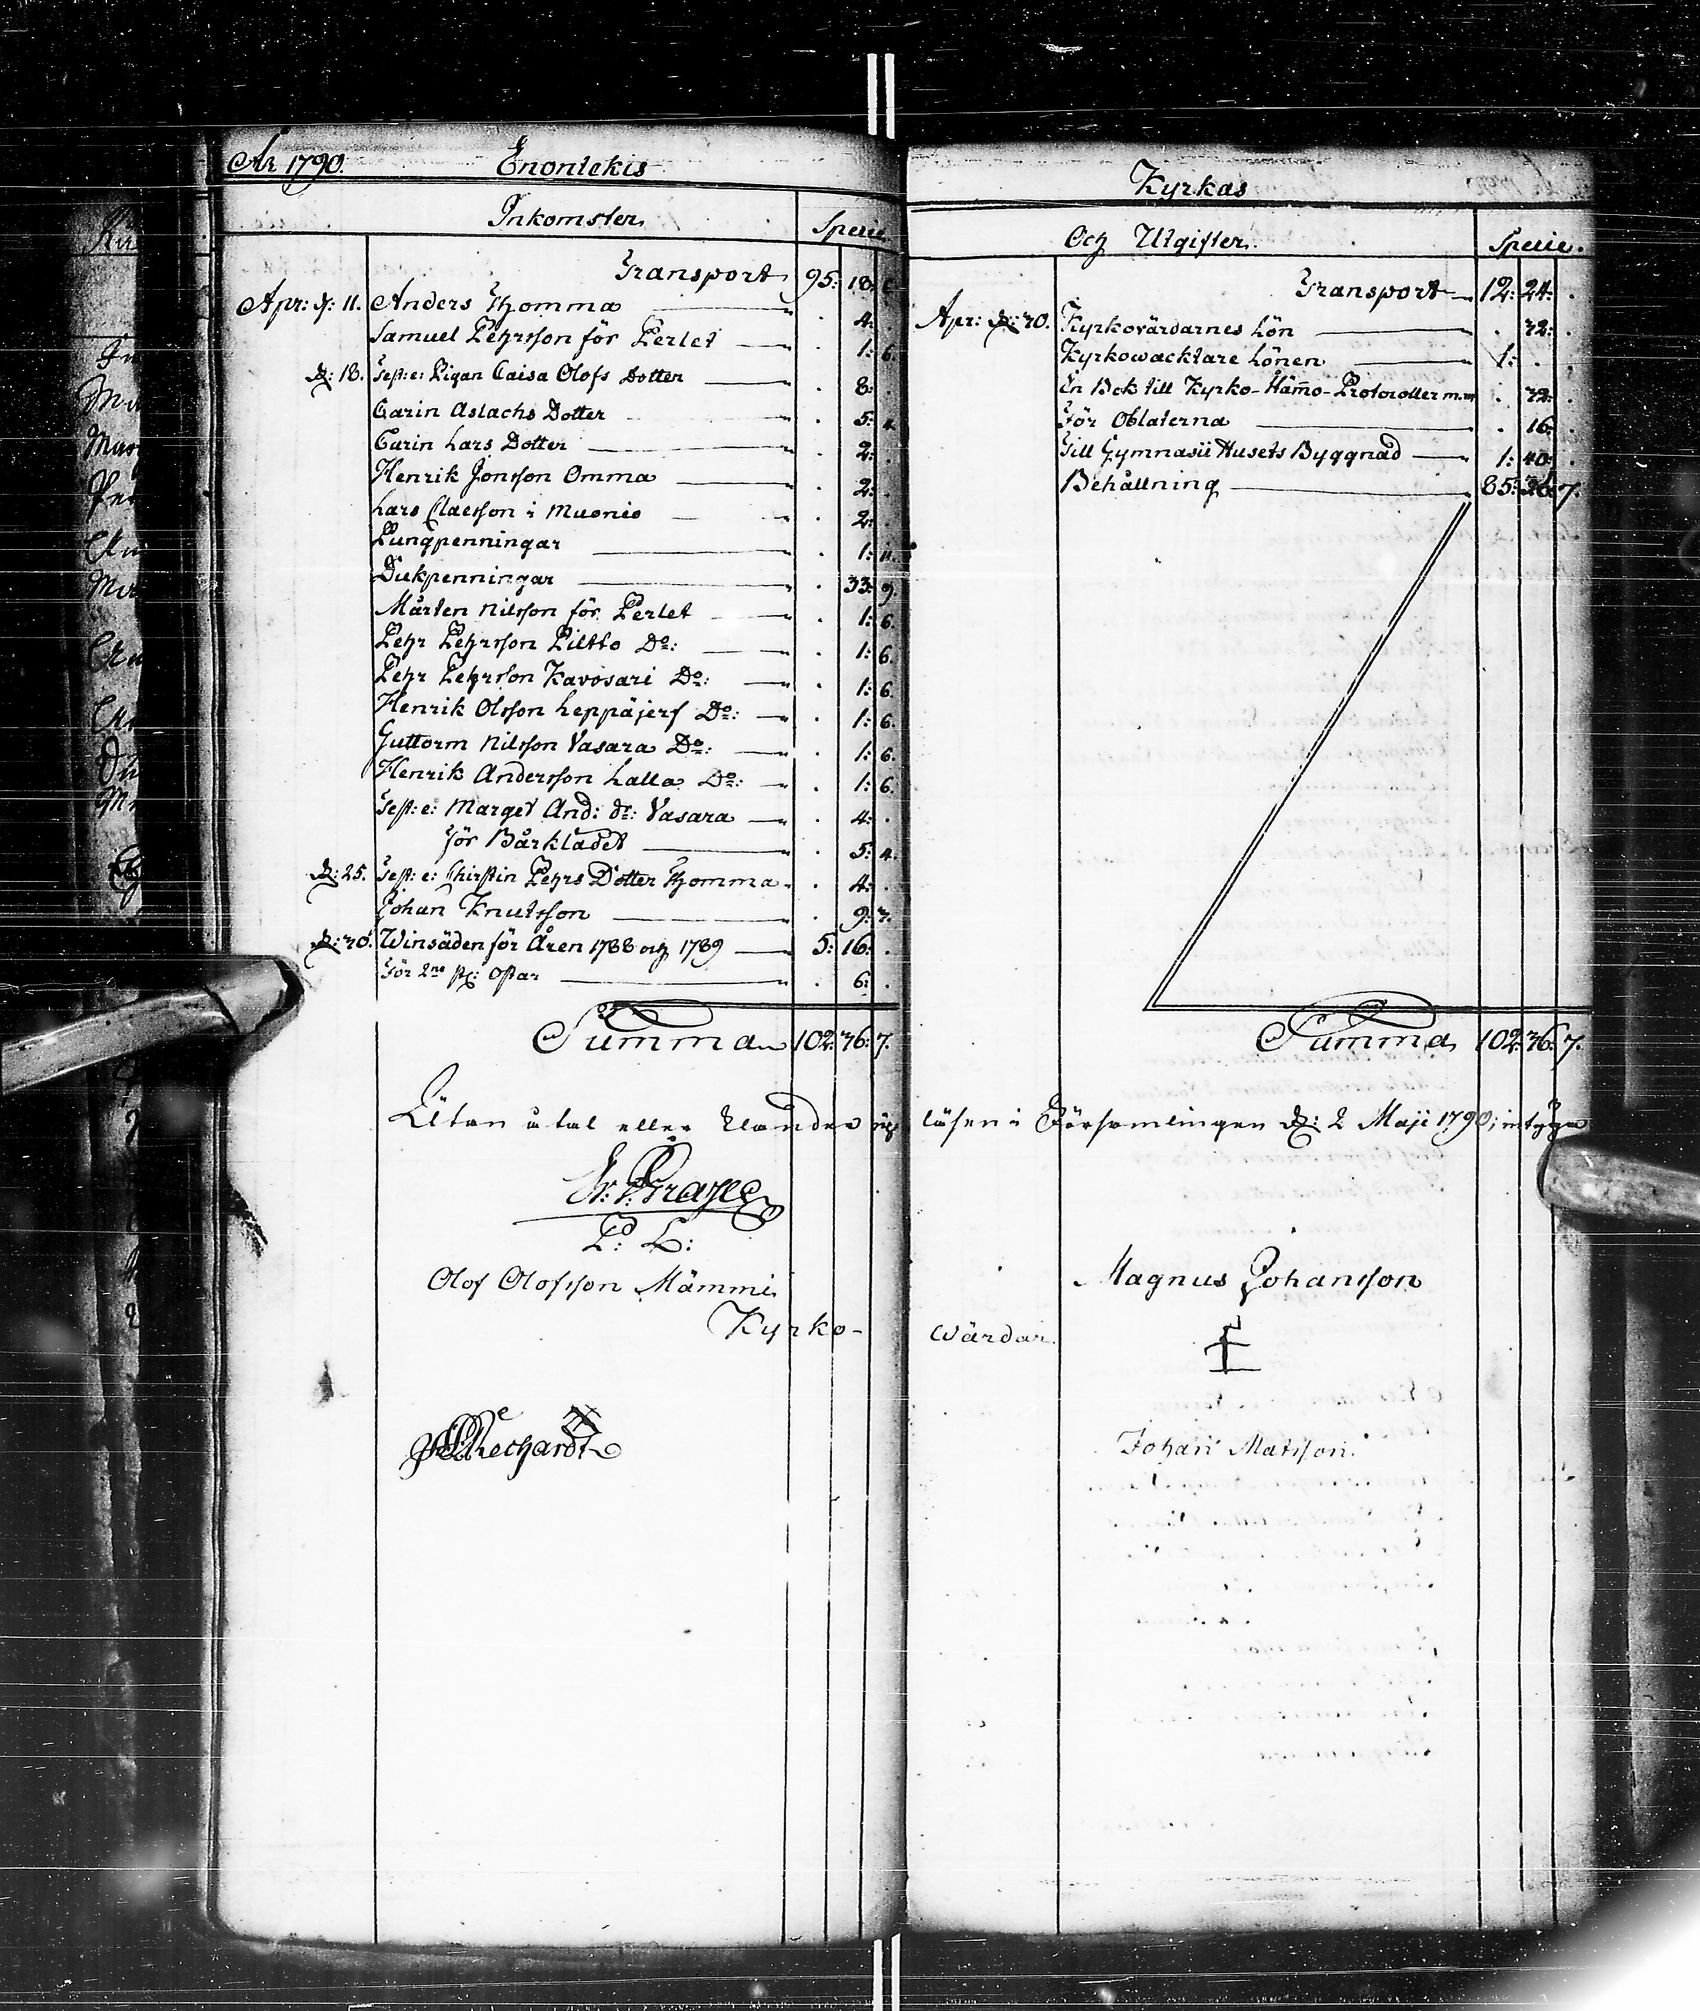 År 1790. Enontekis
Inkomster. Specie.
Transport 95: 18: 6.
Apr: d: 11. Anders Thomma . 4: .
Samuel Pehrsson för Perlet . 1: 6.
d: 18. Test: e: Pigan Caisa Olofs Dotter . 8: .
Carin Aslachs Dotter . 5: 4.
Carin Lars Dotter . 2: .
Henrik Jonsson Omma . 2: .
Lars Claesson i Muonio . 2: .
Pungpenningar . 1: 11.
Dukpenningar . 33: 9.
Mårten Nilsson för Perlet . 1: 6.
Pehr Pehrsson Piltto Do: . 1: 6.
Pehr Pehrsson Kavosari Do: . 1: 6.
Henrik Olsson Leppäjerf Do: . 1: 6.
Guttorm Nilsson Vasara Do: . 1: 6.
Henrik Andersson Lalla Do: . 1: 6.
Test: e: Marget And: dr: Vasara . 4: .
för Bårklädet . 5: 4.
d: 25. Test: e: Chirstin Pehrs Dotter Thomma . 4: .
Johan Knutsson . 9: 3.
d: 30. Winsäden för Åren 1788 och 1789 5: 16: .
För 2ne st: Ostar . 6: .
Summa 102: 36: 7.
Utan åtal eller klander up
P: L:
Olof Olofsson Mämmi
Kyrko-
Kyrkas
Och Utgifter. Specie.
Transport 12: 24: .
Apr: d: 30. Kyrkovärdarnes Lön . 32: .
Kyrkowacktare Lönen 1: . .
En Bok till Kyrko-Häm̄o-Protocoller m.m . 32: .
För Oblaterna . 16: .
Till Gymnasii Husets Byggnad 1: 40: .
Behållning 85: 36: 7.
Summa 102: 36: 7.
läsen i Församlingen d: 2 Maji 1790; intyga
Magnus Johansson
Wärdar.
Johan Matsson.